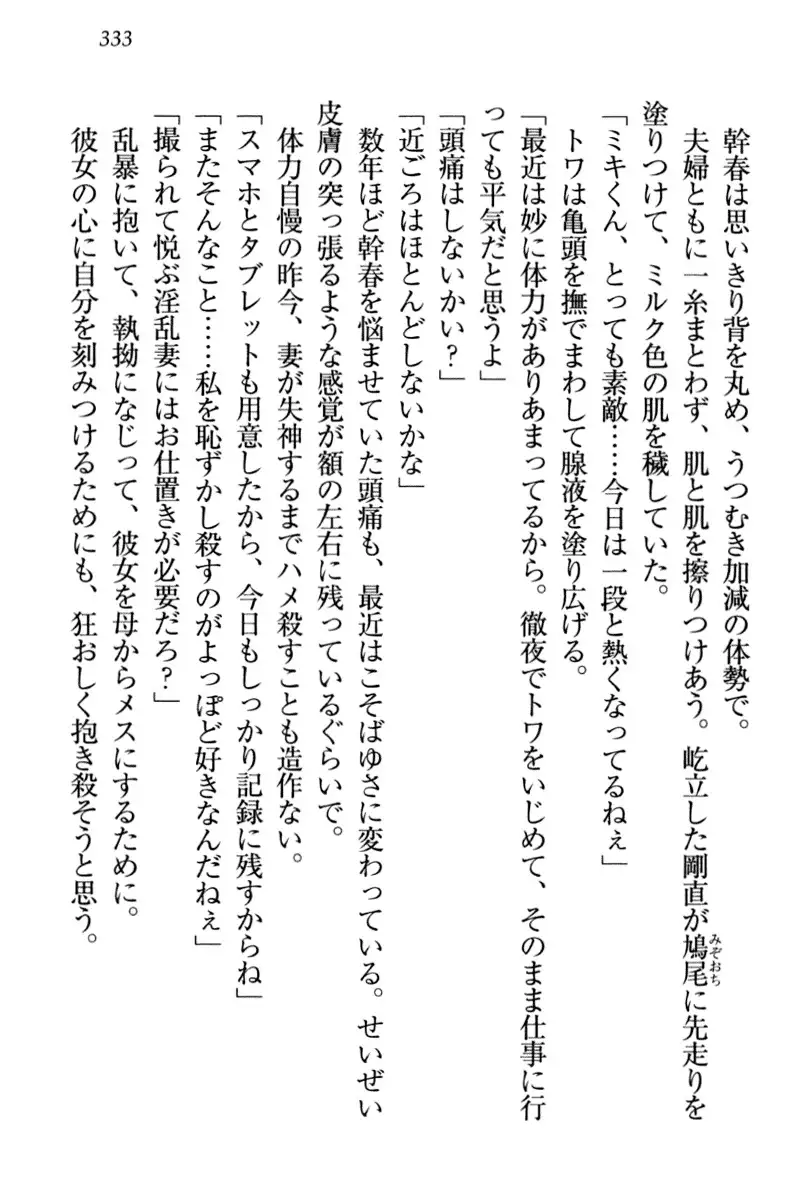 333
幹春は思いきり背を丸め、うつむき加減の体勢で。
夫婦ともに一糸まとわず、肌と肌を擦りつけあう。屹立した剛直が鳩尾に先走りを
塗りつけて、ミルク色の肌を穢していた。
「ミキくん、とっても素敵……今日は一段と熱くなってるねぇ」
トワは亀頭を撫でまわして腺液を塗り広げる。
「最近は妙に体力がありあまってるから。徹夜でトワをいじめて、そのまま仕事に行
っても平気だと思うよ」
「頭痛はしないかい？」
「近ごろはほとんどしないかな」
数年ほど幹春を悩ませていた頭痛も、最近はこそばゆさに変わっている。せいぜい
皮膚の突っ張るような感覚が額の左右に残っているぐらいで。
体力自慢の昨今、妻が失神するまでハメ殺すことも造作ない。
「スマホとタブレットも用意したから、今日もしっかり記録に残すからね」
「またそんなこと……私を恥ずかし殺すのがよっぽど好きなんだねぇ」
「撮られて悦ぶ淫乱妻にはお仕置きが必要だろ？」
乱暴に抱いて、執拗になじって、彼女を母からメスにするために。
彼女の心に自分を刻みつけるためにも、狂おしく抱き殺そうと思う。
みぞおち